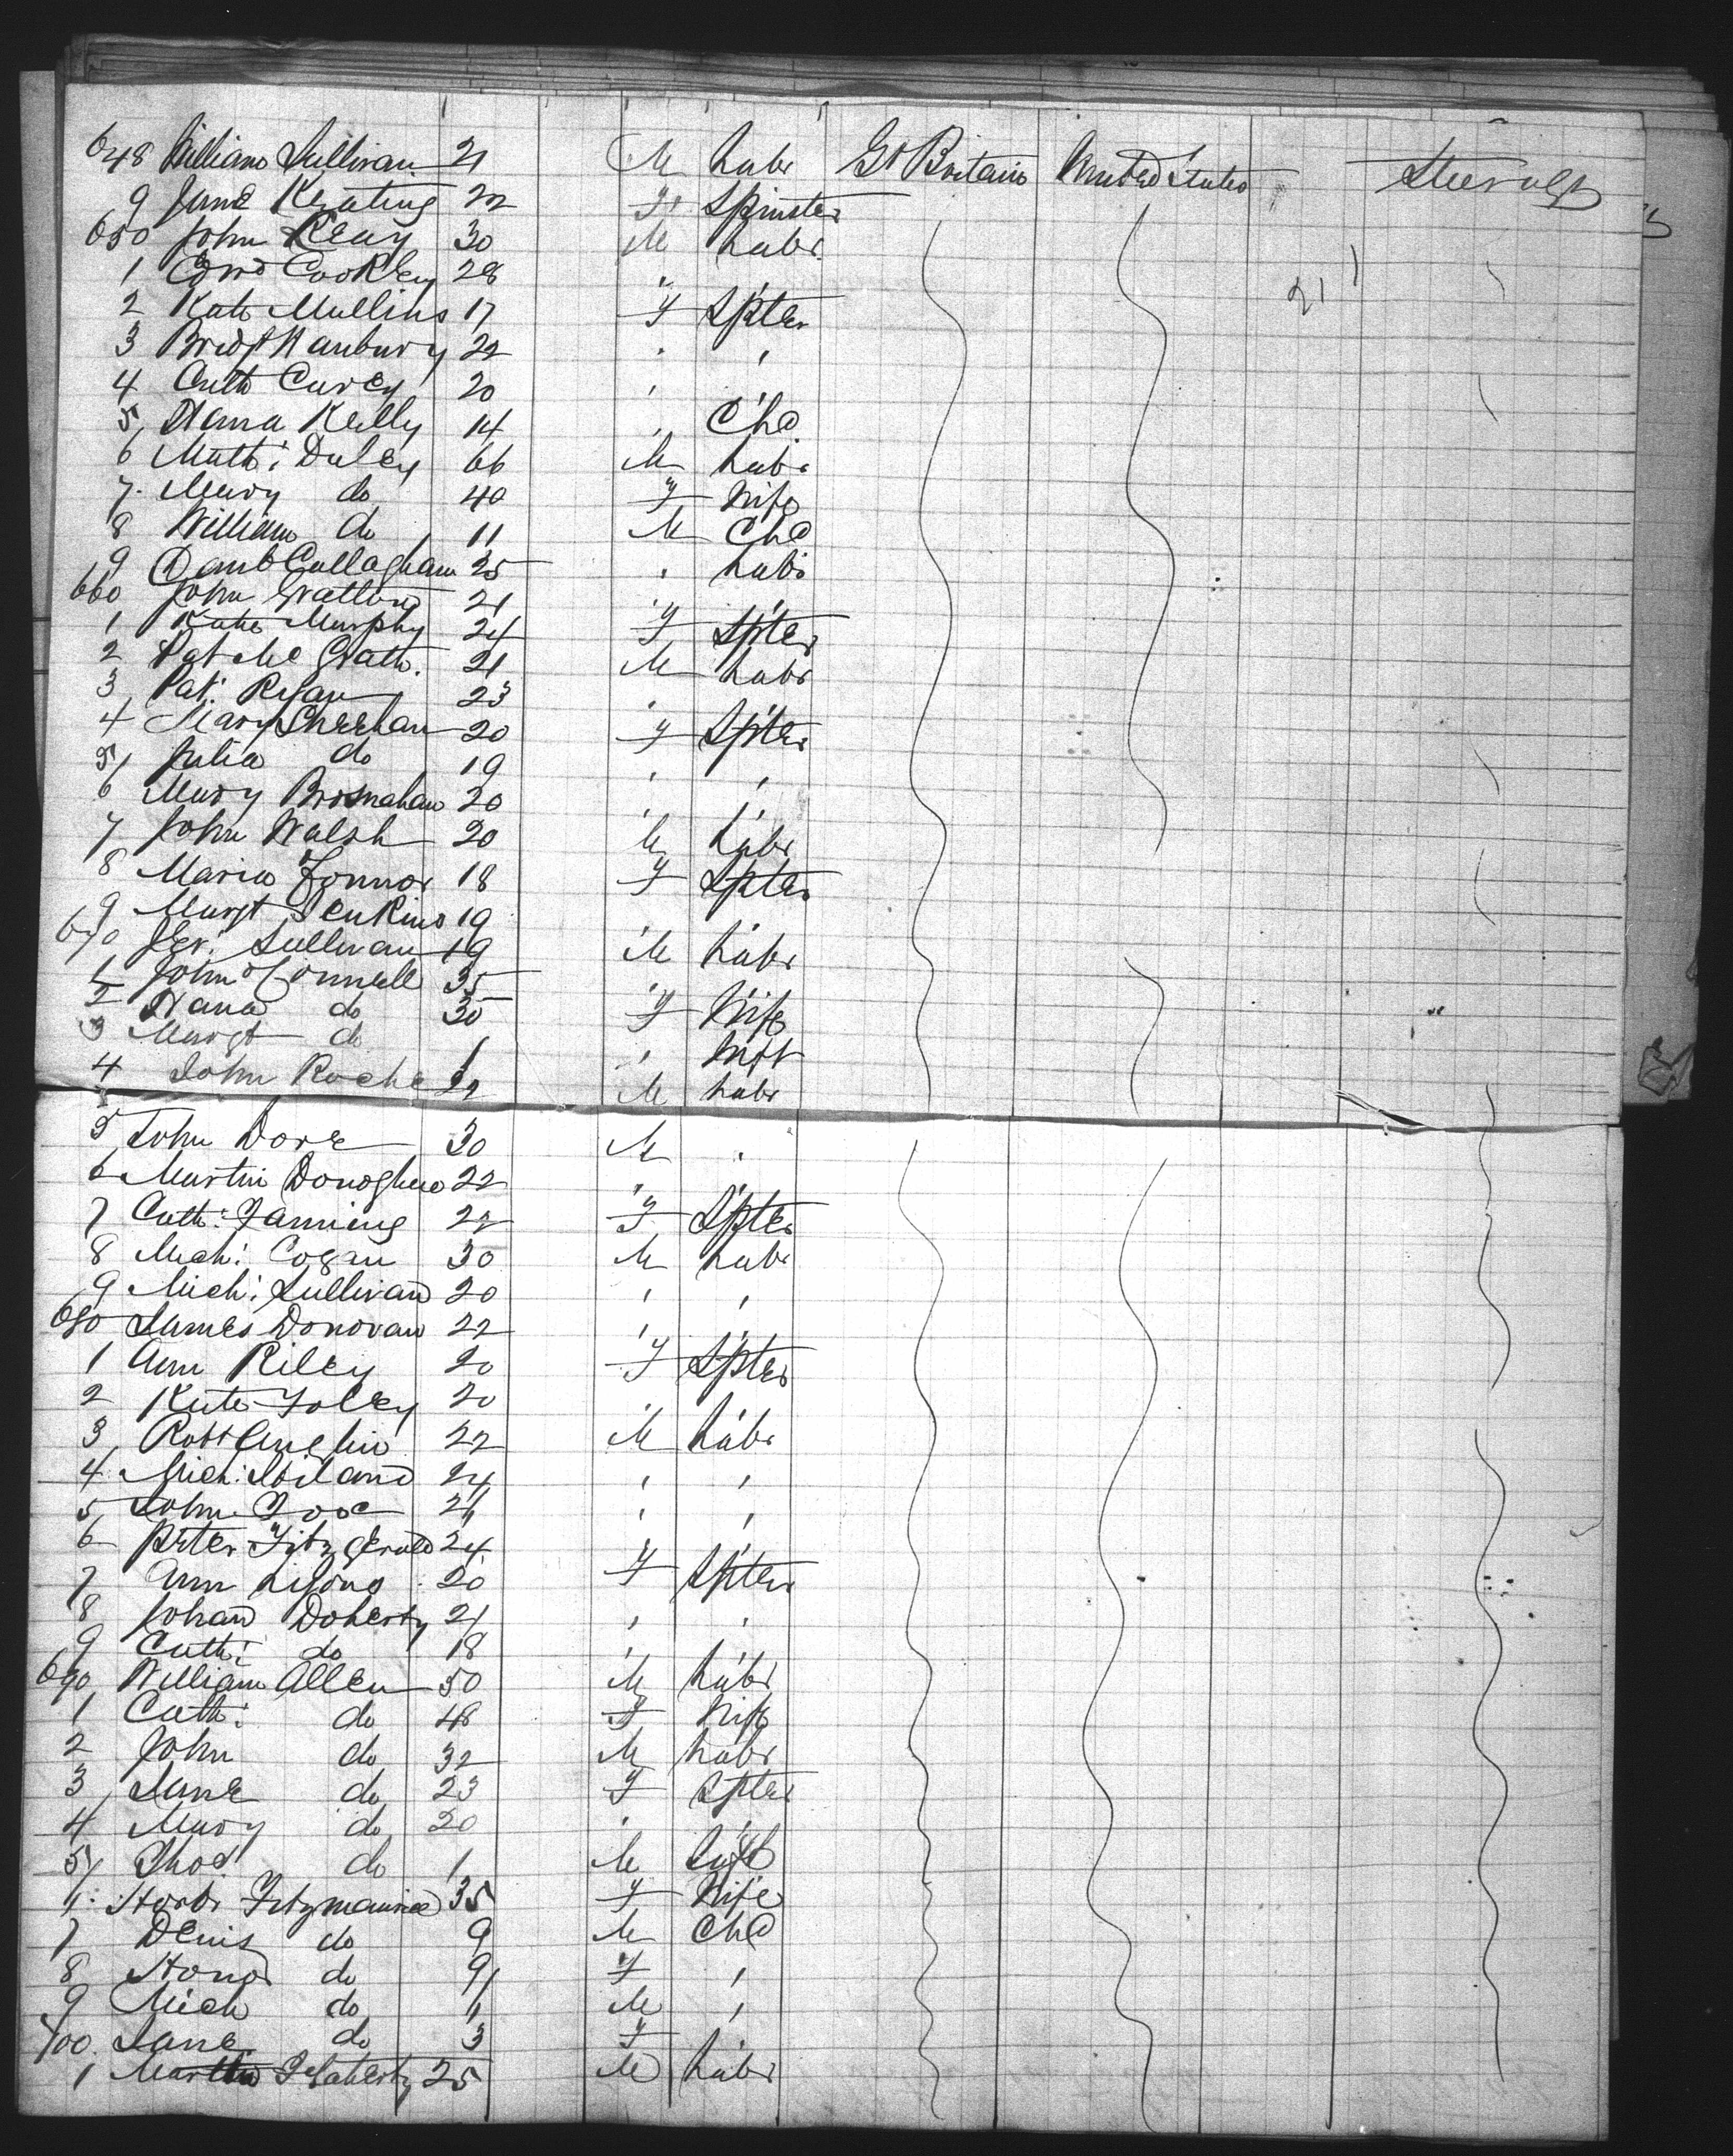 648 William Sullivan 21 M Labr Gt Britain United States Steerage
9 Jane Keating 22 F Spinster
650 John Reay 30 M Labr
1 Edwd Cookley 28 " "
2 Kate Mullins 17 F Spter
3 Bridgt Hanbury 22 " "
4 Cath Curey 20 " "
5 Hana Kelly 14 " Chd
6 Matth: Daley 66 M Labr
7 Mary do 40 F Wife
8 William do 11 M Chd
9 Danl Callaghan 25 " Labr
660 John Grattan 21 " "
1 Kate Murphy 24 F Spter
2 Pat McGrath 21 M Labr
3 Pat: Ryan 23 " "
4 Mary Sheehan 20 F Spter
5 Julia do 19 " "
6 Mary Brosnahan 20 " "
7 John Walsh 20 M Labr
8 Maria Connor 18 F Spter
9 Margt Jenkins 19 " "
670 Jer: Sullivan 19 M Labr
1 John O'Connell 35 " "
2 Hana do 30 F Wife
3 Margt do 1 " Inft
4 John Roche 22 M Labr
5 John Dore 30 M "
6 Martin Donoghue 22 " "
7 Cath: Fanning 22 F Spter
8 Mich: Cogan 30 M Labr
9 Mich: Sullivan 20 " "
680 James Donovan 22 " "
1 Ann Riley 20 F Spter
2 Kate Foley 20 " "
3 Robt Anglin 22 M Labr
4 Mich: 24 " "
5 John 21 " "
6 Peter Fitzgerald 24 " "
7 Ann Lyons 20 F Spter
8 Johan Doherty 21 " "
9 Cath: do 18 " "
690 William Allen 50 M Labr
1 Cath: do 48 F Wife
2 John do 32 M Labr
3 Jane do 23 F Spter
4 Mary do 20 " "
5 Thos do 1 M Inft
6 Honor Fitzmaurice 35 F Wife
7 Denis do 9 M Chd
8 Honor do 9 F "
9 Mich do M "
700 Jane do 3 F "
1 Martin Flaherty 25 M Labr